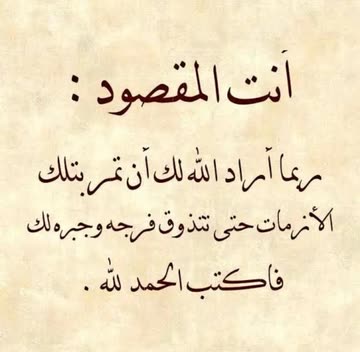 أنت المقصود :
ربما أراد الله لك أن تمر بتلك
الأزمات حتى تتذوق فرجه وجبره لك
فاكتب الحمد لله .